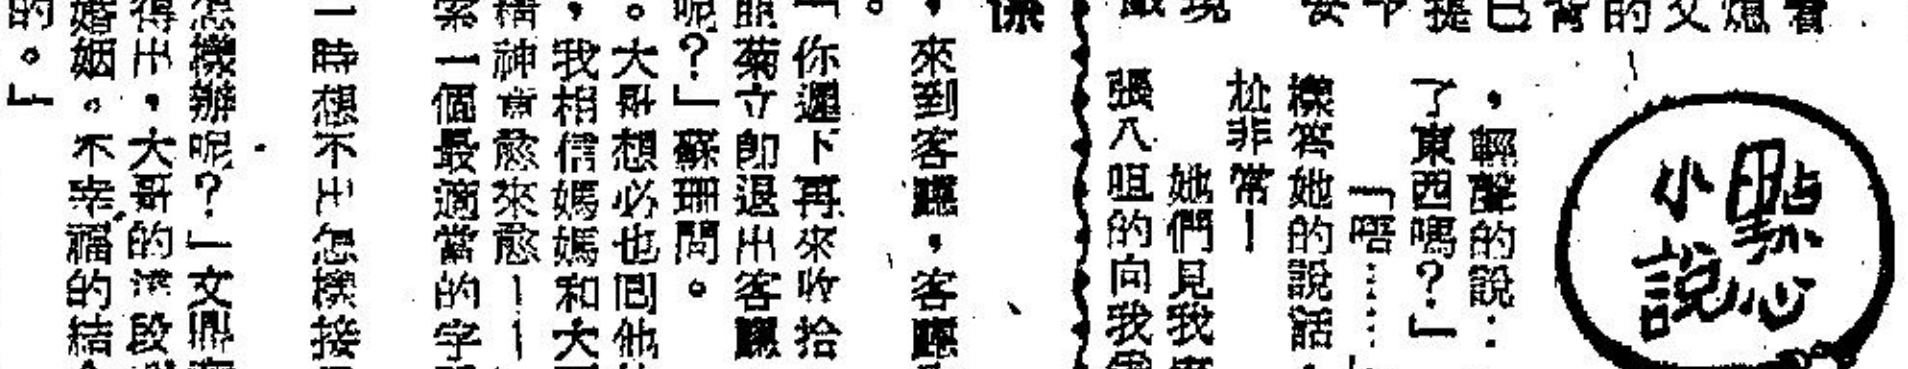 看
熄
父
的
背
已
提
點心
小說
，輕聲的說：
了東西嗎？」
「唔……
樣答她的說話
尬非常！
她們見我
張八咀的向我
，來到客廳，客廳
「你遲下再來收拾
菊立卽退出客廳
呢？」蘇珊問。
。大哥想必也同他
，我相信媽媽和大
精神會愈來愈——
索一個最適當的字
一時想不出怎樣接
怎樣辦呢？」文鼎
得出，大哥的這段
婚姻。不幸福的結
的。」